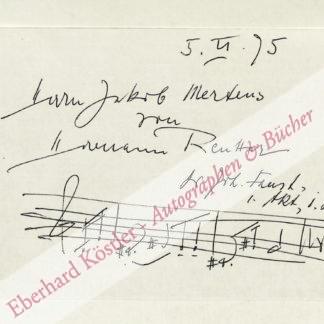 5. VI. 75
Herrn Jakob Mertens
von
Hermann Reutter
Faust,
1. Akt,
Eberhard Köstler - Autographen & Bücher